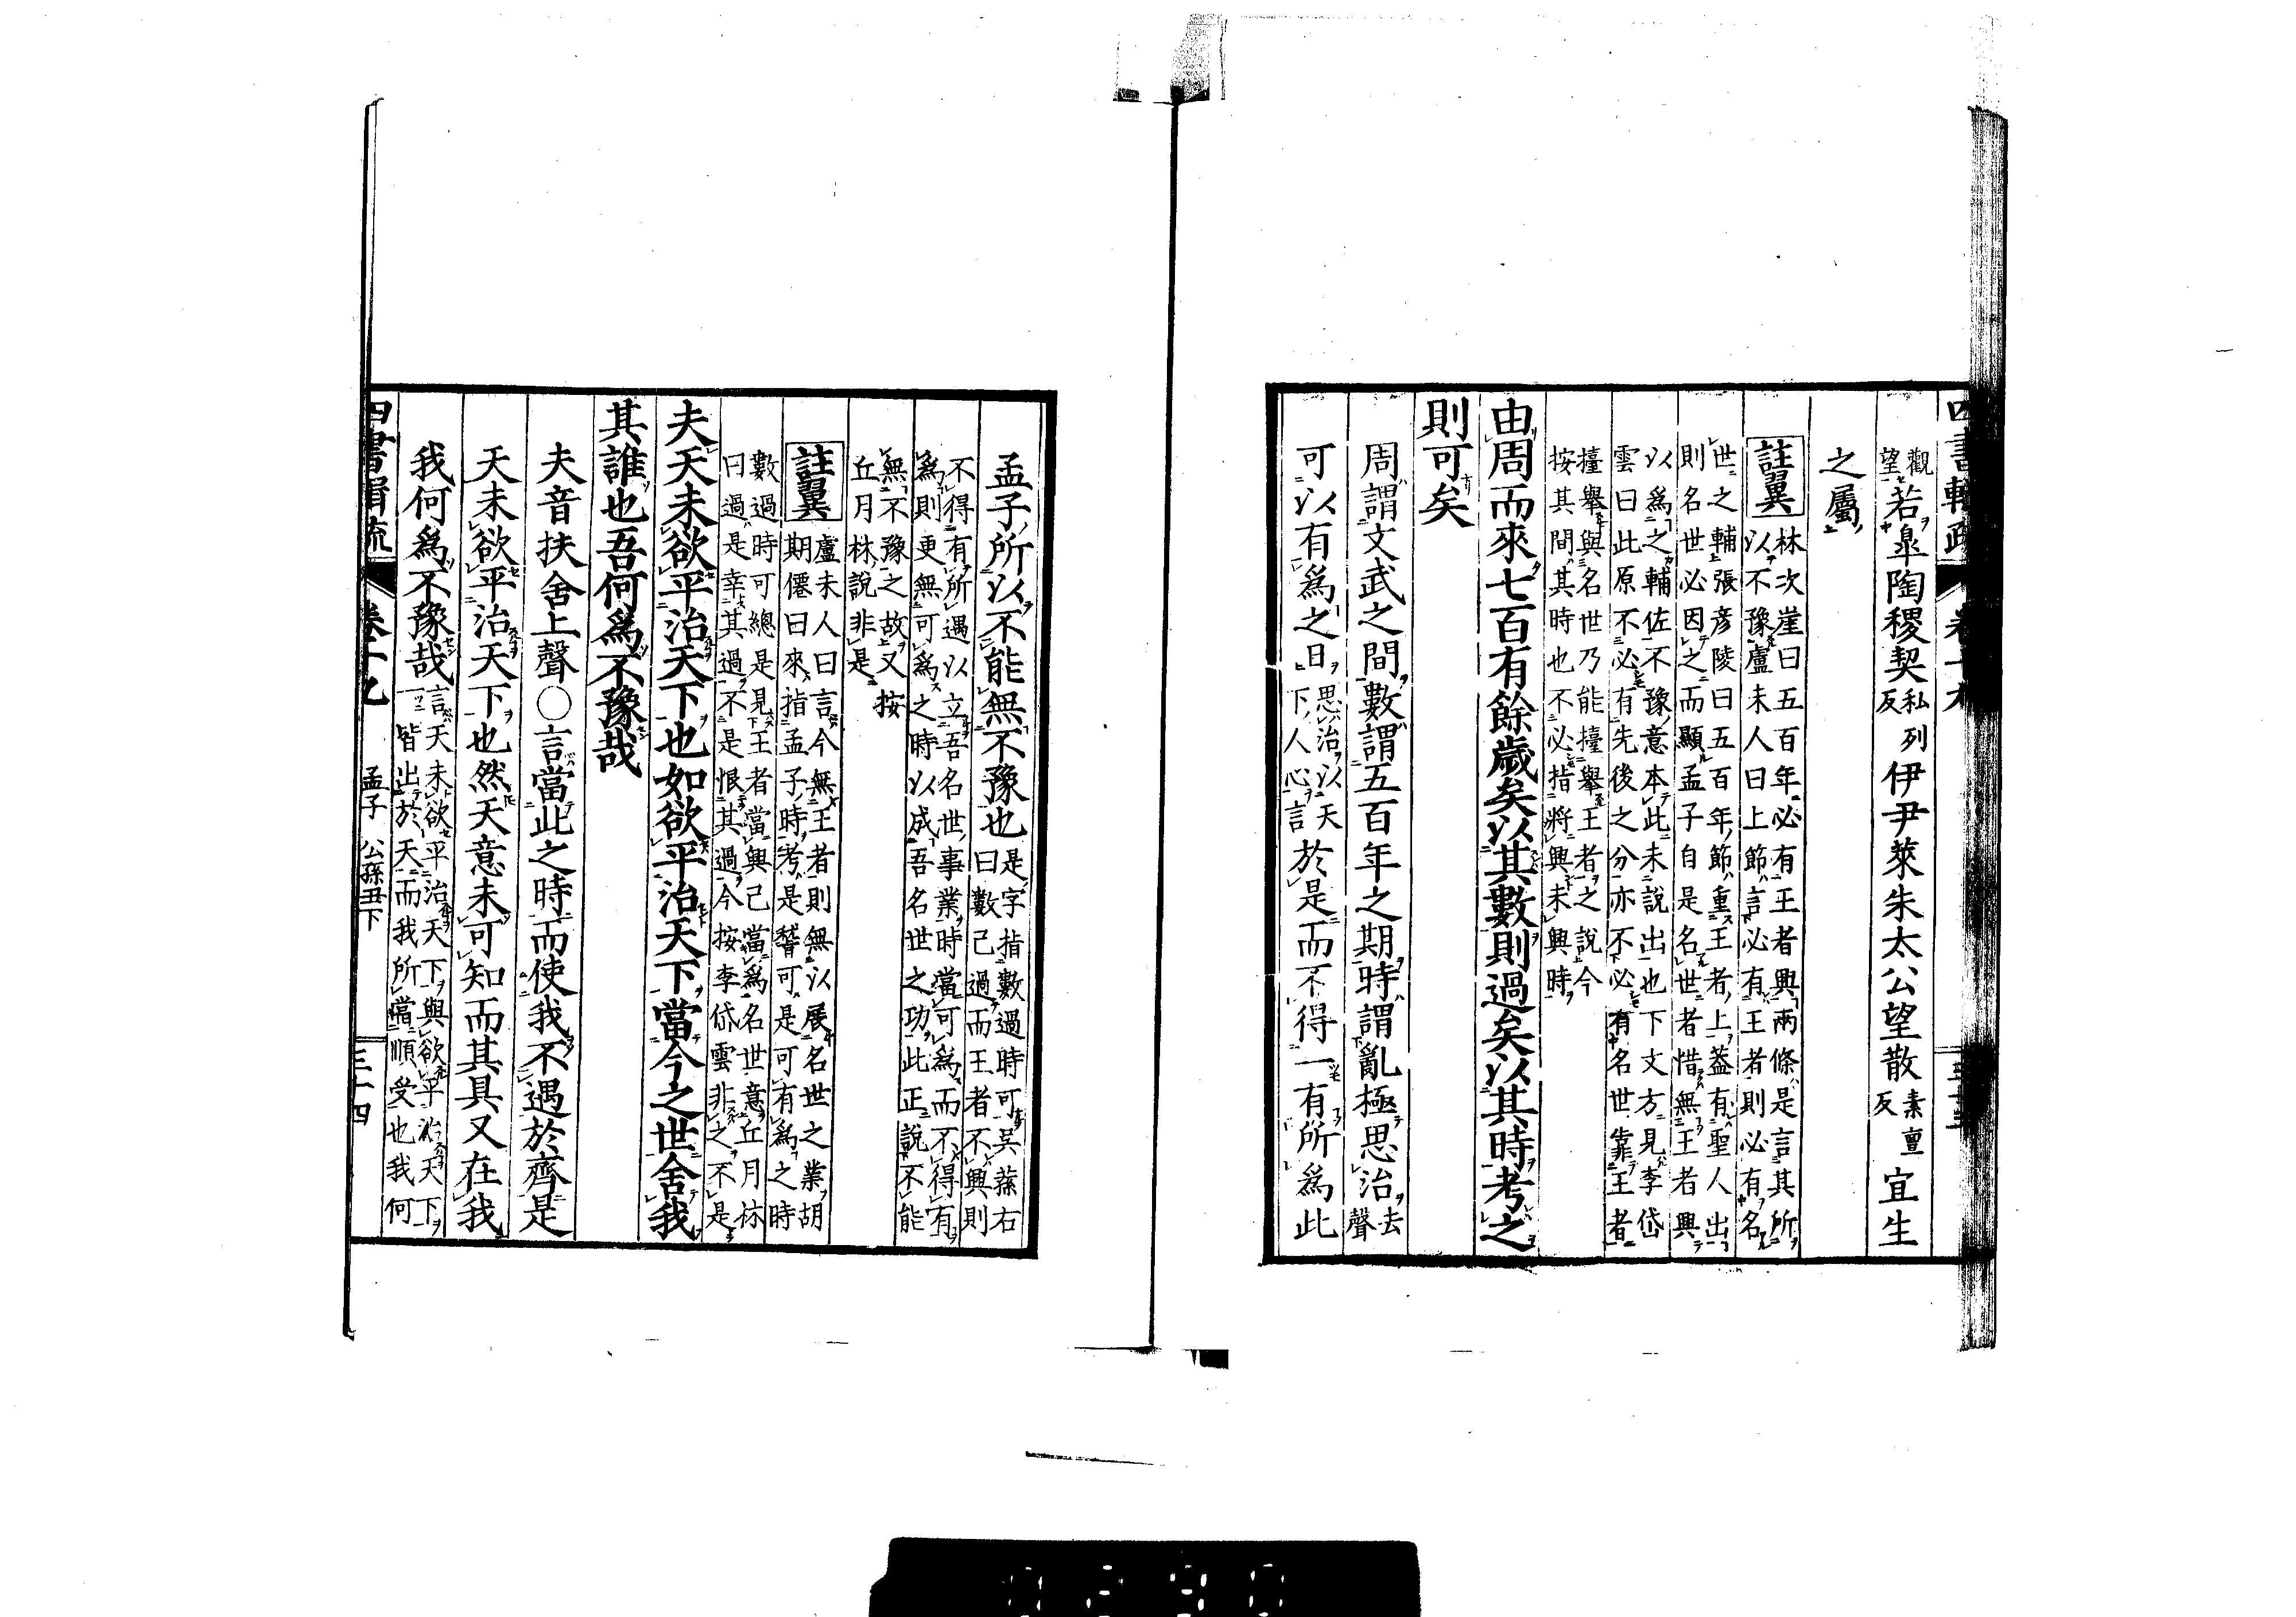 四書輯疏
卷十九
觀
望
若皐陶稷契
私列
反
伊尹萊朱太公望散
素亶
反
宜生
之屬
註翼
林次崖曰五百年必有王者興兩條是言其所
以不豫盧未人曰上節言必有王者則必有名
世之輔張彥陵曰五百年節重王者上蓋有聖人出
則名世必因之而顯孟子自是名世者惜無王者興
以爲之輔佐不豫意本此未說出也下文方見李岱
雲曰此原不必有先後之分亦不必有名世靠王者
擡舉與名世乃能擡舉王者之說今
按其間其時也不必指將興未興時
由周而來七百有餘歲矣以其數則過矣以其時考之
則可矣
周謂文武之間數謂五百年之期時謂亂極思治
去
聲
可以有爲之日
思治以天
下人心言
於是而不得一有所爲此
孟子所以不能無不豫也
是字指數過時可吳蓀右
曰數已過而王者不興則
不得有所遇以立吾名世事業時當可爲而不得有
爲則更無可爲之時以成吾名世之功此正說不能
無不豫之故又按
丘月林說非是
註翼
盧未人曰言今無王者則無以展名世之業胡
期僊曰來指孟子時考是稽可是可有爲之時
數過時可總是見王者當興己當爲名世意丘月林
曰過是幸其過不是恨其過今按李岱雲非之不是
夫天未欲平治天下也如欲平治天下當今之世舍我
其誰也吾何爲不豫哉
夫音扶舍上聲○言當此之時而使我不遇於齊是
天未欲平治天下也然天意未可知而其具又在我
我何爲不豫哉
言天未欲平治天下與欲平治天下
一一皆出於天而我所當順受也我何
四書輯疏
卷十九
孟子 公孫丑下
三十四